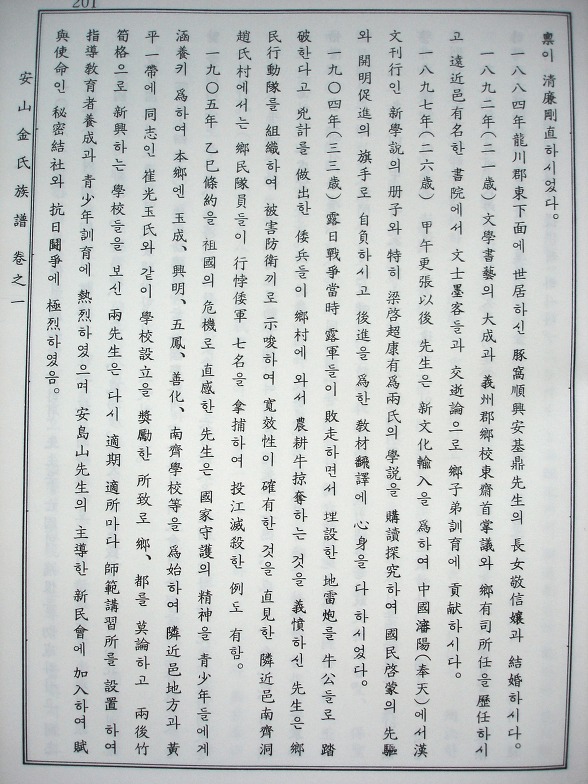 201
稟이 清廉剛直하시었다.
一八八四年龍川郡東下面에 世居하신 豚窩順興安基鼎先生의 長女敬信孃과 結婚하시다.
一八九二年(二一歲) 文學書藝의 大成과 義州郡鄕校東齋首掌議와 鄕有司所任을 歷任하시
고 遠近邑有名한 書院에서 文士墨客들과 交逝論으로 鄕子弟訓育에 貢献하시다.
一八九七年(二六歲) 甲午更張以後 先生은 新文化輸入을 爲하여 中國瀋陽(奉天)에서漢
文刊行인 新學說의 册子와 特히 梁啓超康有爲兩氏의 學説을 購讀探究하여 國民啓蒙의 先驅
와 開明促進의 旗手로 自負하시고 後進을 爲한 敎材飜譯에 心身을 다 하시었다.
一九○四年(三三歲) 露日戰爭當時 露軍들이 敗走하면서 埋設한 地雷炮를 牛公들로 踏
破한다고 兇計를 做出한 倭兵들이 鄕村에 와서 農耕牛掠奪하는 것을 義憤하신 先生은 鄕
民行動隊를 組織하여 被害防衛끼로 示唆하여 寬效性이 確有한 것을 直見한 隣近邑南齊洞
趙氏村에서는 鄕民隊員들이 行悖倭軍 七名을 拿捕하여 投江滅殺한 例도 有함.
一九○五年 乙巳條約을 祖國의 危機로 直感한 先生은 國家守護의 精神을 青少年들에게
涵養키 爲하여 本鄕엔 玉成、興明、五鳳、善化、南齊學校等을 爲始하여 隣近邑地方과 黃
平一帶에 同志인 崔光玉氏와 같이 學校設立을 獎勵한 所致로 鄕、都를 莫論하고 雨後竹
筍格으로 新興하는 學校들을 보신 兩先生은 다시 適期 適所마다 師範講習所를 設置 하여
指導敎育者養成과 青少年訓育에 熱烈하였으며 安島山先生의 主導한 新民會에 加入하여 賦
與使命인 秘密結社와 抗日鬪爭에 極烈하였음。
安山金氏族譜 卷之一